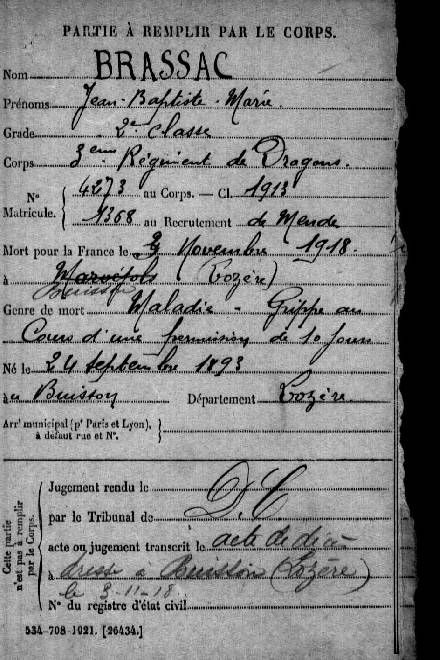 PARTIE À REMPLIR PAR LE CORPS.
Nom BRASSAC
Prénoms Jean-Baptiste-Marie
Grade 2e Classe
Corps 3eme Régiment de Dragons.
N° Matricule. 4273 au Corps. — Cl. 1913
1368 au Recrutement de Mende
Mort pour la France le 3 Novembre 1918
à Marvejols (Lozère)
Buisson
Genre de mort Maladie - Grippe au
Cours d'une permission de 10 jours
Né le 24 septembre 1893
à Buisson Département Lozère
Arrt municipal (pr Paris et Lyon), à défaut rue et N°.
Cette partie n'est pas à remplir par le Corps.
Jugement rendu le
par le Tribunal de D.C
acte ou jugement transcrit le acte de décès
à dressé à Buisson (Lozère)
le 3-11-18
N° du registre d'état civil
534-708-1921. [26434.]